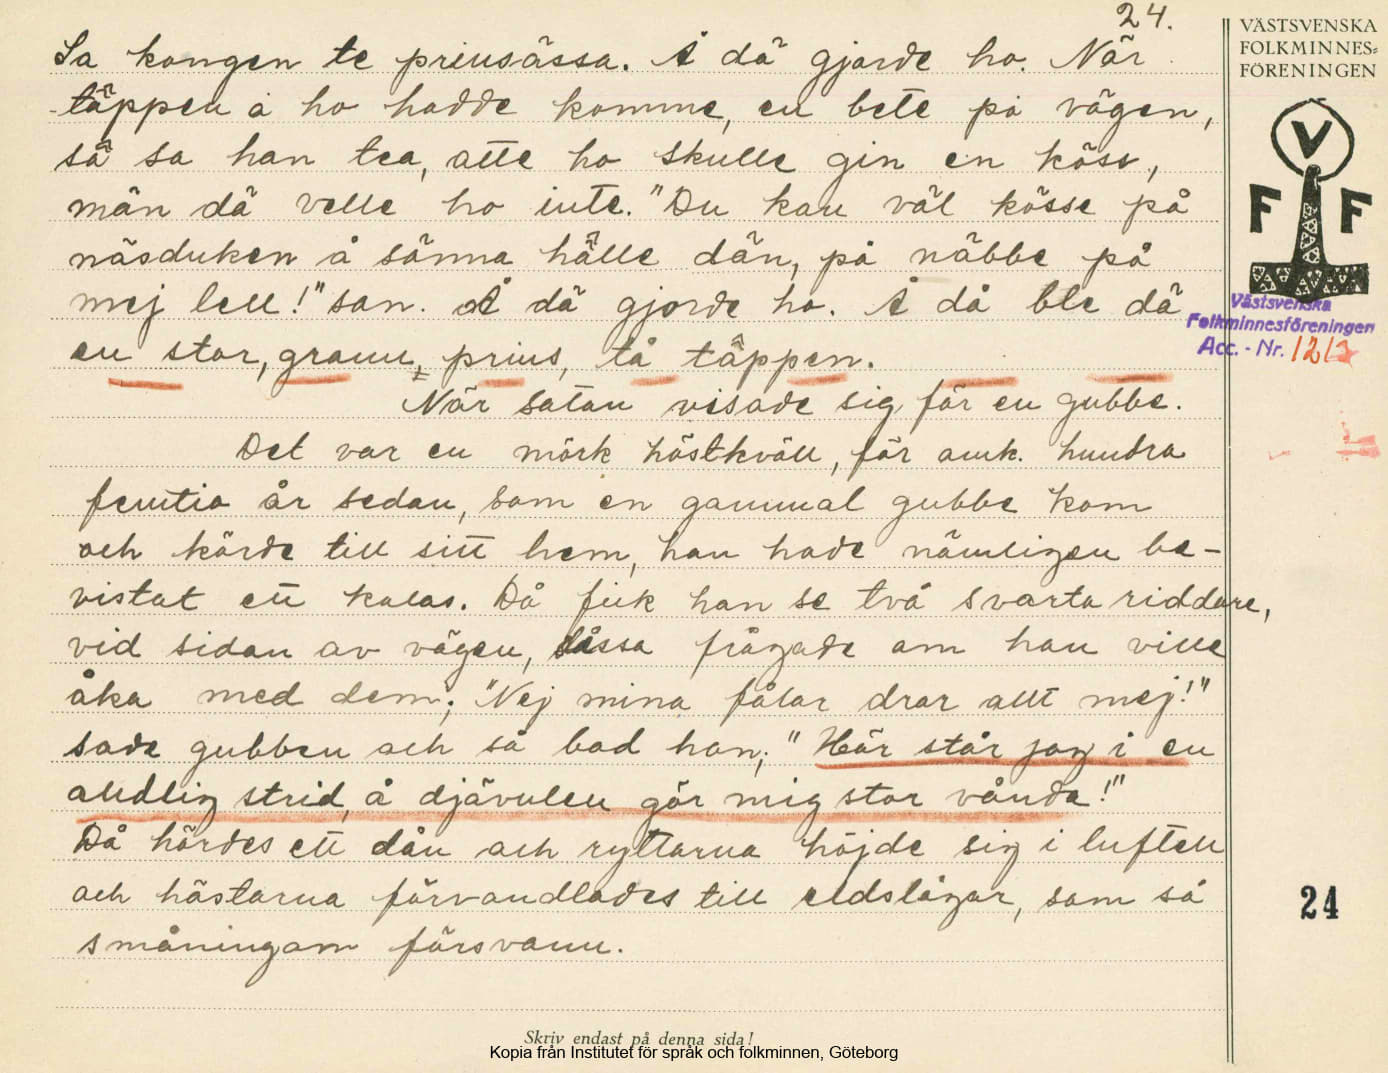 24.
VÄSTSVENSKA
FOLKMINNES-
FÖRENINGEN
V
F F
Västsvenska
Folkminnesföreningen
Acc. - Nr. 1213
Sa kongen te prinsässa. Å dä gjorde ho. När
täppen å ho hadde komme, en bete på vägen,
så sa han tea, atte ho skulle gin en köss,
män dä velle ho inte. "Du kan väl kösse på
näsduken å sänna hålle dän, på näbbe på
mej lell!" san. Å dä gjorde ho. Å då ble dä
en stor, grann, prins, tå täppen.
När satan visade sig för en gubbe.
Det var en mörk höstkväll, för omk. hundra
femtio år sedan, som en gammal gubbe kom
och körde till sitt hem, han hade nämligen be-
vistat ett kalas. Då fick han se två svarta riddare,
vid sidan av vägen, dässa frågade om han ville
åka med dem; "Nej mina fålar drar allt mej!"
sade gubben och så bad han; "Här står jag i en
andlig strid, å djävulen gör mig stor vånda!"
Då hördes ett dån och ryttarna höjde sig i luften
och hästarna förvandlades till eldslågar, som så
småningom försvann.
24
Skriv endast på denna sida!
Kopia från Institutet för språk och folkminnen, Göteborg